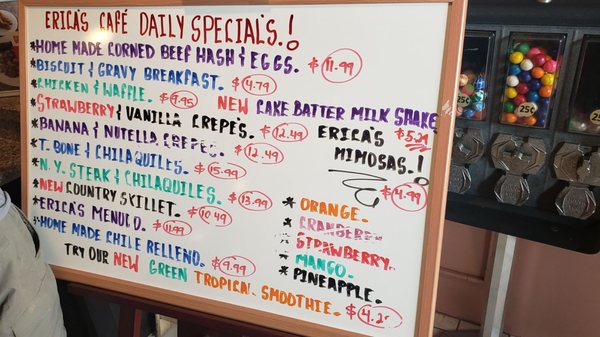 ERICA'S CAFÉ DAILY SPECIAL'S.!
*HOME MADE CORNED BEEF HASH & EGGS. $11.99
*BISCUIT & GRAVY BREAKFAST. $4.79
*CHICKEN & WAFFLE. $9.95
NEW CAKE BATTER MILK SHAKE $5.29
*STRAWBERRY & VANILLA CREPES. $12.49
*BANANA & NUTELLA CREPES. $12.49
*T. BONE & CHILAQUILES. $15.99
*N.Y. STEAK & CHILAQUILES. $13.99
*NEW COUNTRY SKILLET. $10.49
*ERICA'S MENUDO. $11.99
*HOME MADE CHILE RELLENO. $9.99
ERICA'S
MIMOSAS.!
$4.99
* ORANGE.
* CRANBERRY
* STRAWBERRY.
* MANGO.
* PINEAPPLE.
TRY OUR NEW GREEN TROPICAL SMOOTHIE. $4.25
25¢
25¢
25¢